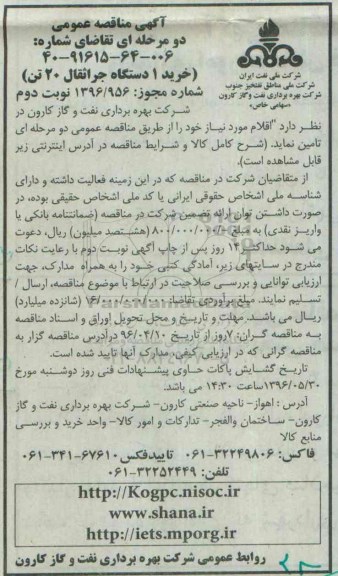 آگهی مناقصه عمومی
دو مرحله ای تقاضای شماره:
۴۰-۹۱۶۱۵-۶۴-۰۰۶
(خرید ۱ دستگاه جراثقال ۲۰ تن)
شماره مجوز: ۱۳۹۶/۹۵۶ نوبت دوم
شرکت ملی نفت ایران
شرکت ملی مناطق نفتخیز جنوب
شرکت بهره برداری نفت و گاز کارون
«سهامی خاص»
شرکت بهره برداری نفت و گاز کارون در
نظر دارد "اقلام مورد نیاز خود را از طریق مناقصه عمومی دو مرحله ای
تامین نماید. (شرح کامل کالا و شرایط مناقصه در آدرس اینترنتی زیر
قابل مشاهده است).
از متقاضیان شرکت در مناقصه که در این زمینه فعالیت داشته و دارای
شناسه ملی اشخاص حقوقی ایرانی یا کد ملی اشخاص حقیقی بوده، در
صورت داشتن توان ارائه تضمین شرکت در مناقصه (ضمانتنامه بانکی یا
واریز نقدی) به مبلغ ۸۰۰/۰۰۰/۰۰۰/- (هشتصد میلیون) ریال، دعوت
می شود حداکثر ۱۴ روز پس از چاپ آگهی نوبت دوم با رعایت نکات
مندرج در سایتهای زیر، آمادگی کتبی خود را به همراه مدارک، جهت
ارزیابی توانایی و بررسی صلاحیت در ارتباط با موضوع مناقصه، ارسال /
تسلیم نمایند. مبلغ برآوردی تقاضا: ۱۶/۰۰۰/۰۰۰/۰۰۰ (شانزده میلیارد)
ریال می باشد. مهلت و تاریخ و محل تحویل اوراق و اسناد مناقصه
به مناقصه گران: ۷ روز از تاریخ ۹۶/۰۴/۱۰ درآدرس مناقصه گزار به
مناقصه گرانی که در ارزیابی کیفی، مدارک آنها تایید شده است.
تاریخ گشایش پاکات حاوی پیشنهادات فنی روز دوشنبه مورخ
۱۳۹۶/۰۵/۳۰ ساعت ۱۴:۳۰ می باشد.
آدرس : اهواز- ناحیه صنعتی کارون- شرکت بهره برداری نفت و گاز
کارون- ساختمان والفجر- تدارکات و امور کالا- واحد خرید و بررسی
منابع کالا
فاکس: ۳۲۲۴۹۸۰۶-۰۶۱ تاییدفکس ۶۷۶۱۰-۳۴۱-۰۶۱
تلفن: ۳۲۲۵۲۴۴۹-۰۶۱
http://Kogpc.nisoc.ir
www.shana.ir
http://iets.mporg.ir
روابط عمومی شرکت بهره برداری نفت و گاز کارون